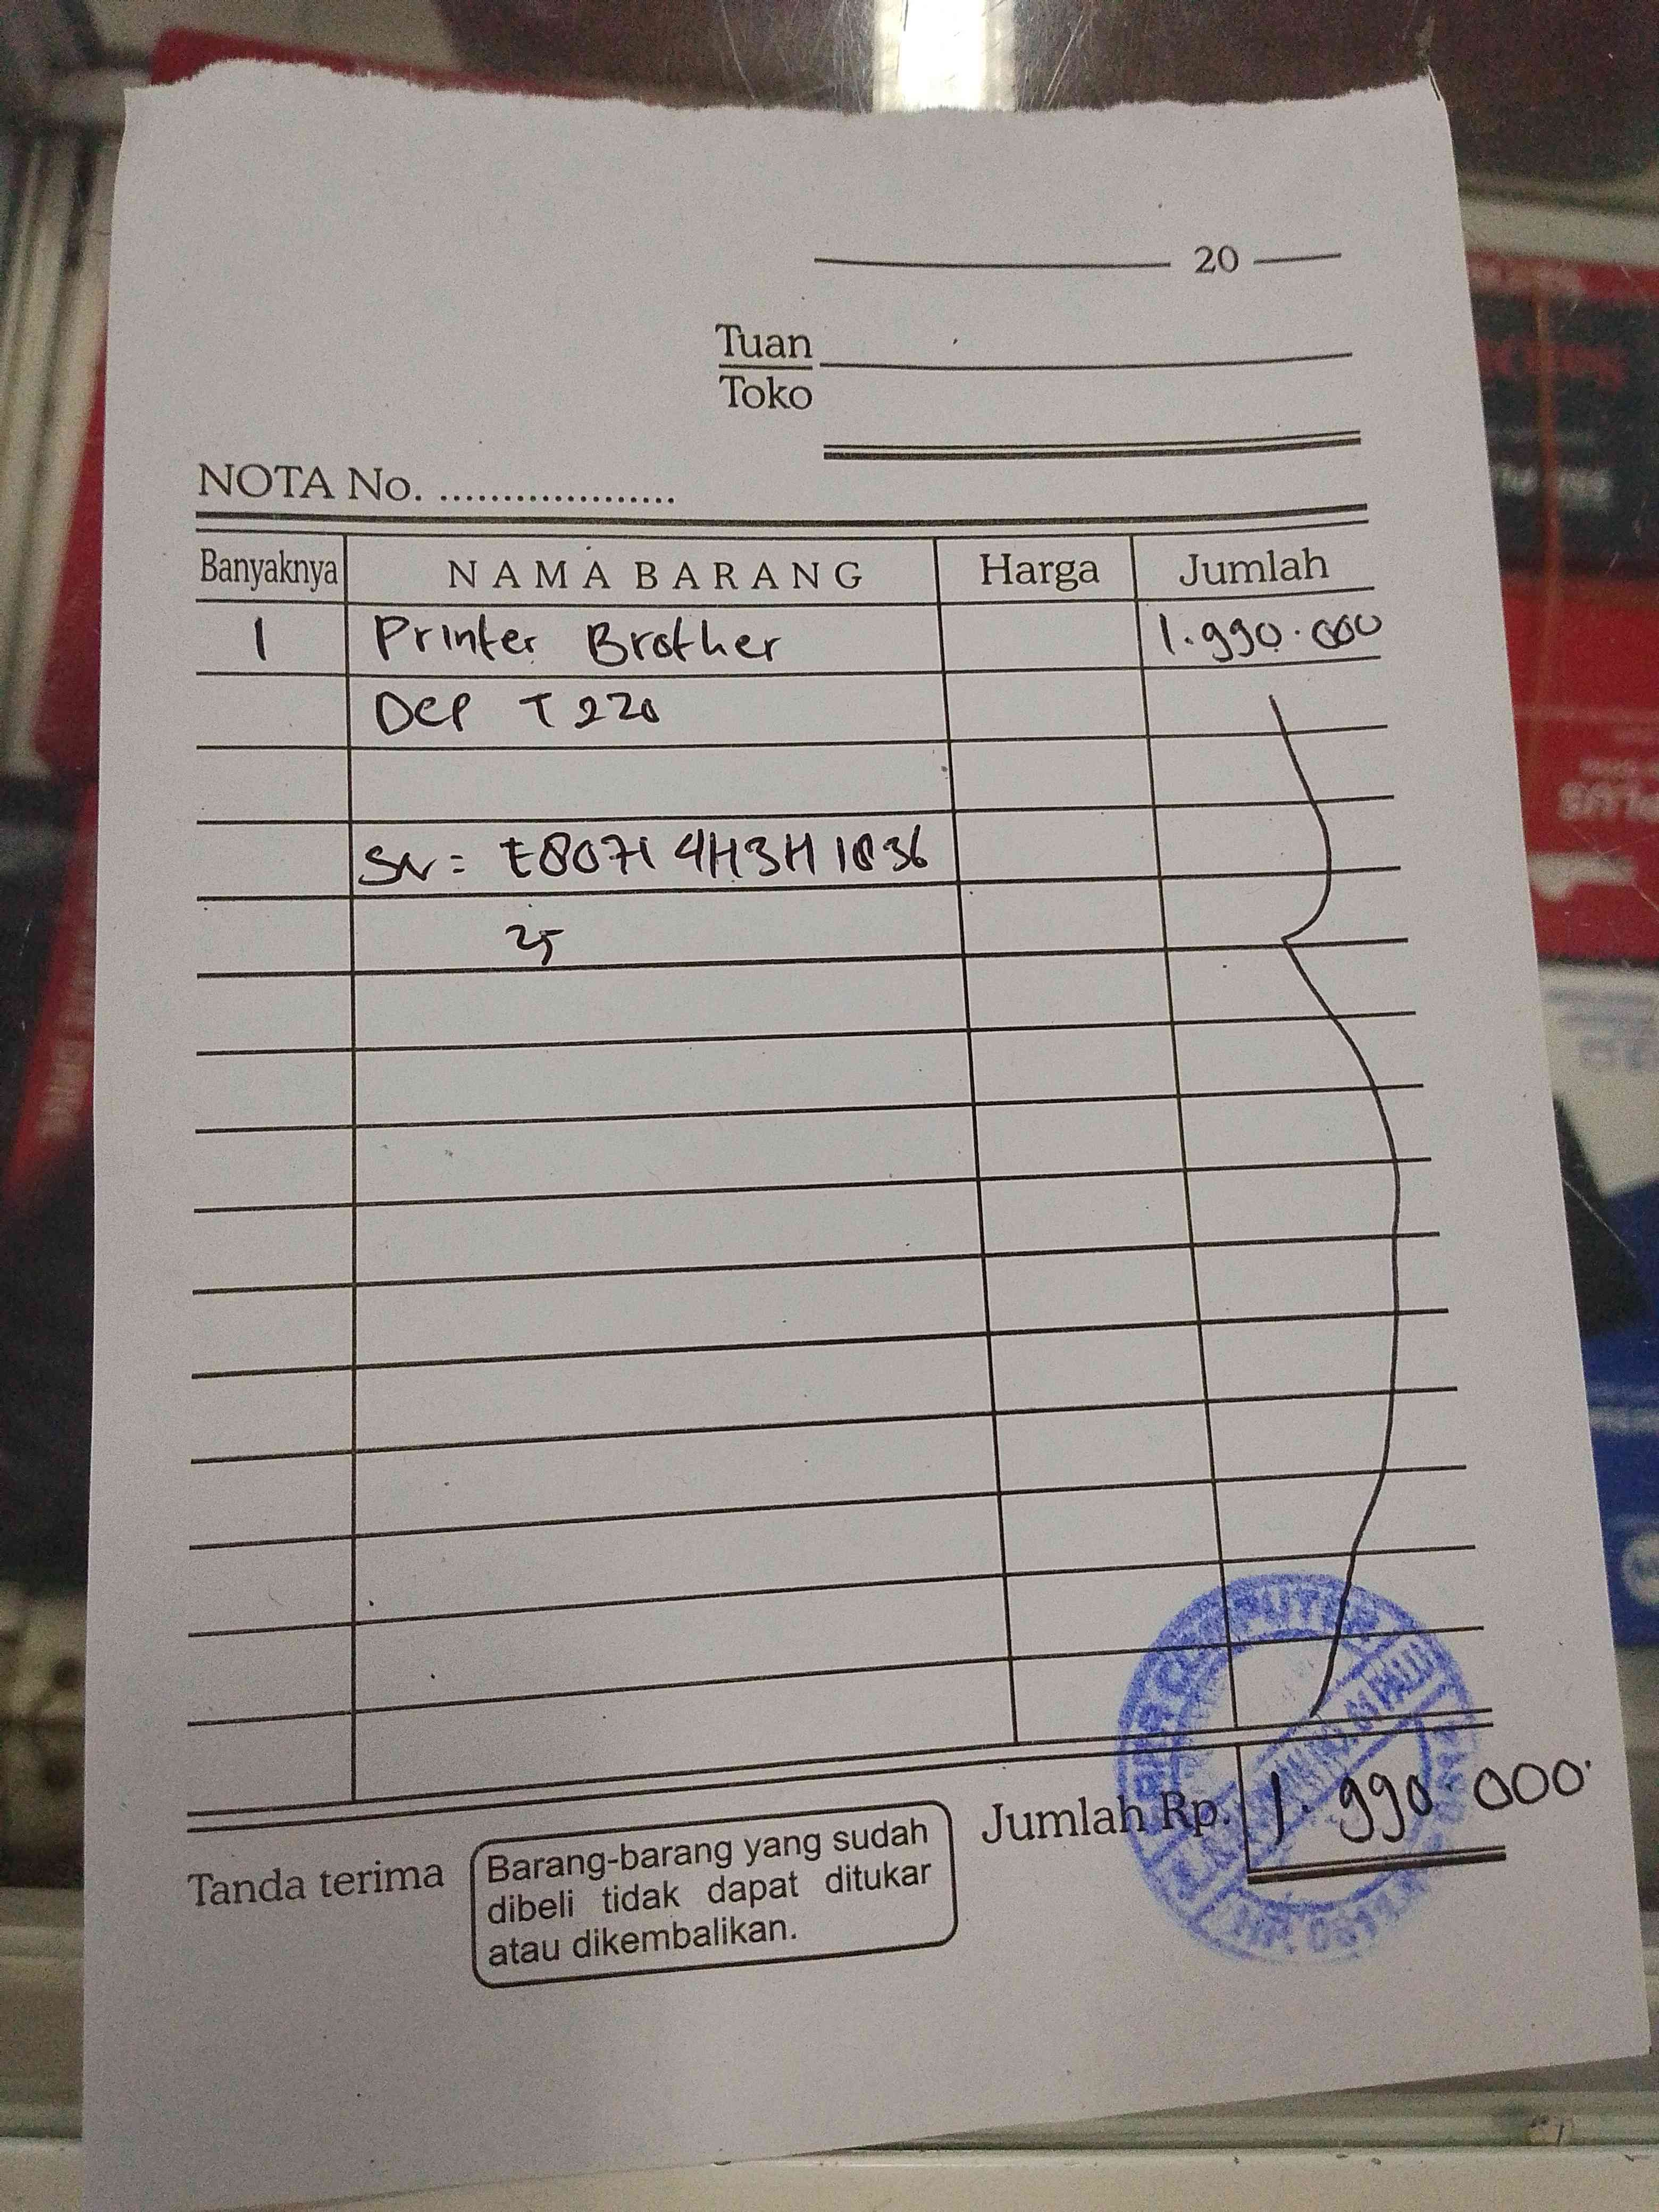 20
Tuan
Toko
NOTA No. ....................
Banyaknya NAMA BARANG Harga Jumlah
1 Printer Brother 1.990.000
DCP T220
SN = E80714H3H1836
25
Jumlah Rp. 1.990.000
Tanda terima
Barang-barang yang sudah
dibeli tidak dapat ditukar
atau dikembalikan.